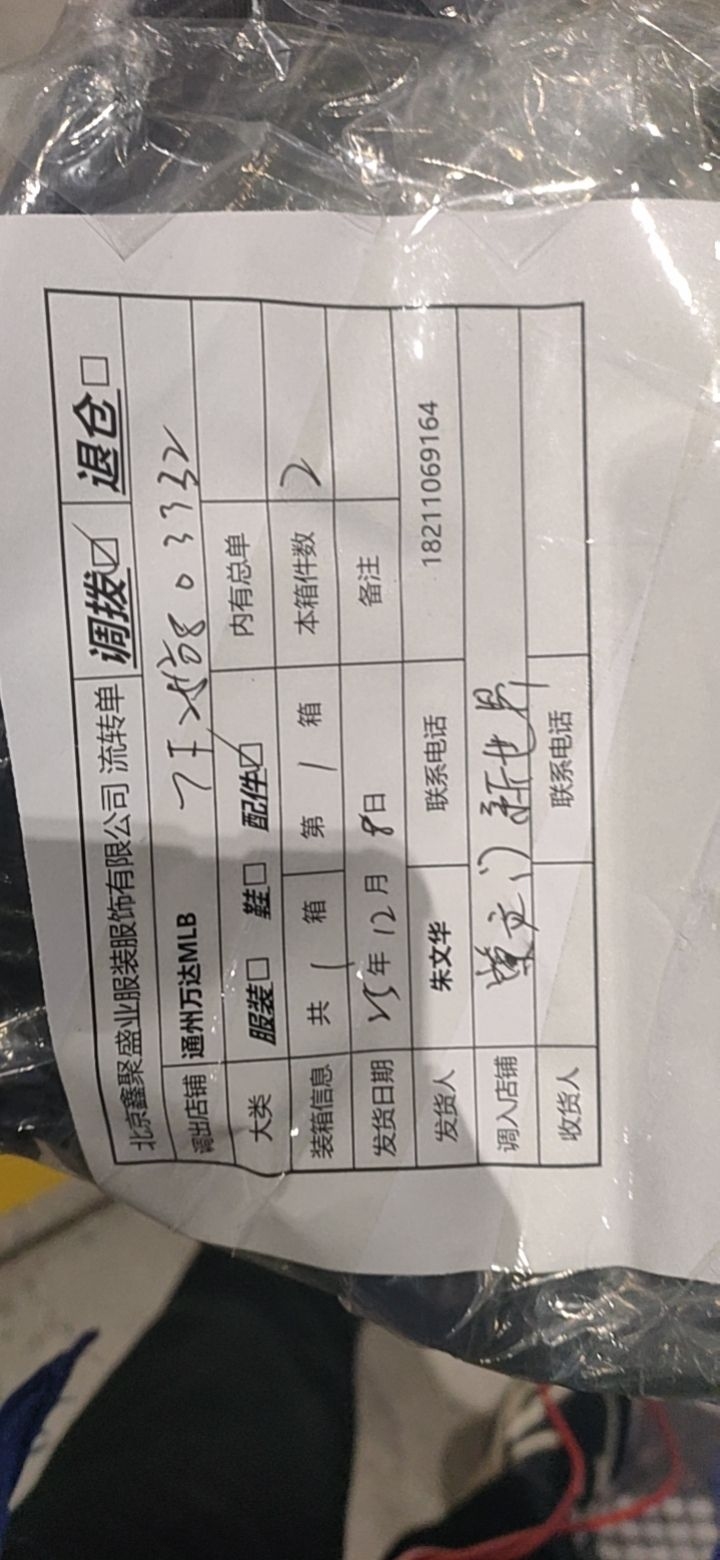 北京鑫聚盛业服装服饰有限公司 流转单 调拨☑ 退仓□
调出店铺 通州万达MLB
大类 服装□ 鞋□ 配件☑ 内有总单
装箱信息 共 1 箱 第 1 箱 本箱件数 2
发货日期 25年12月8日 备注
发货人 朱文华 联系电话 18211069164
调入店铺 崇文门新世界
收货人 联系电话